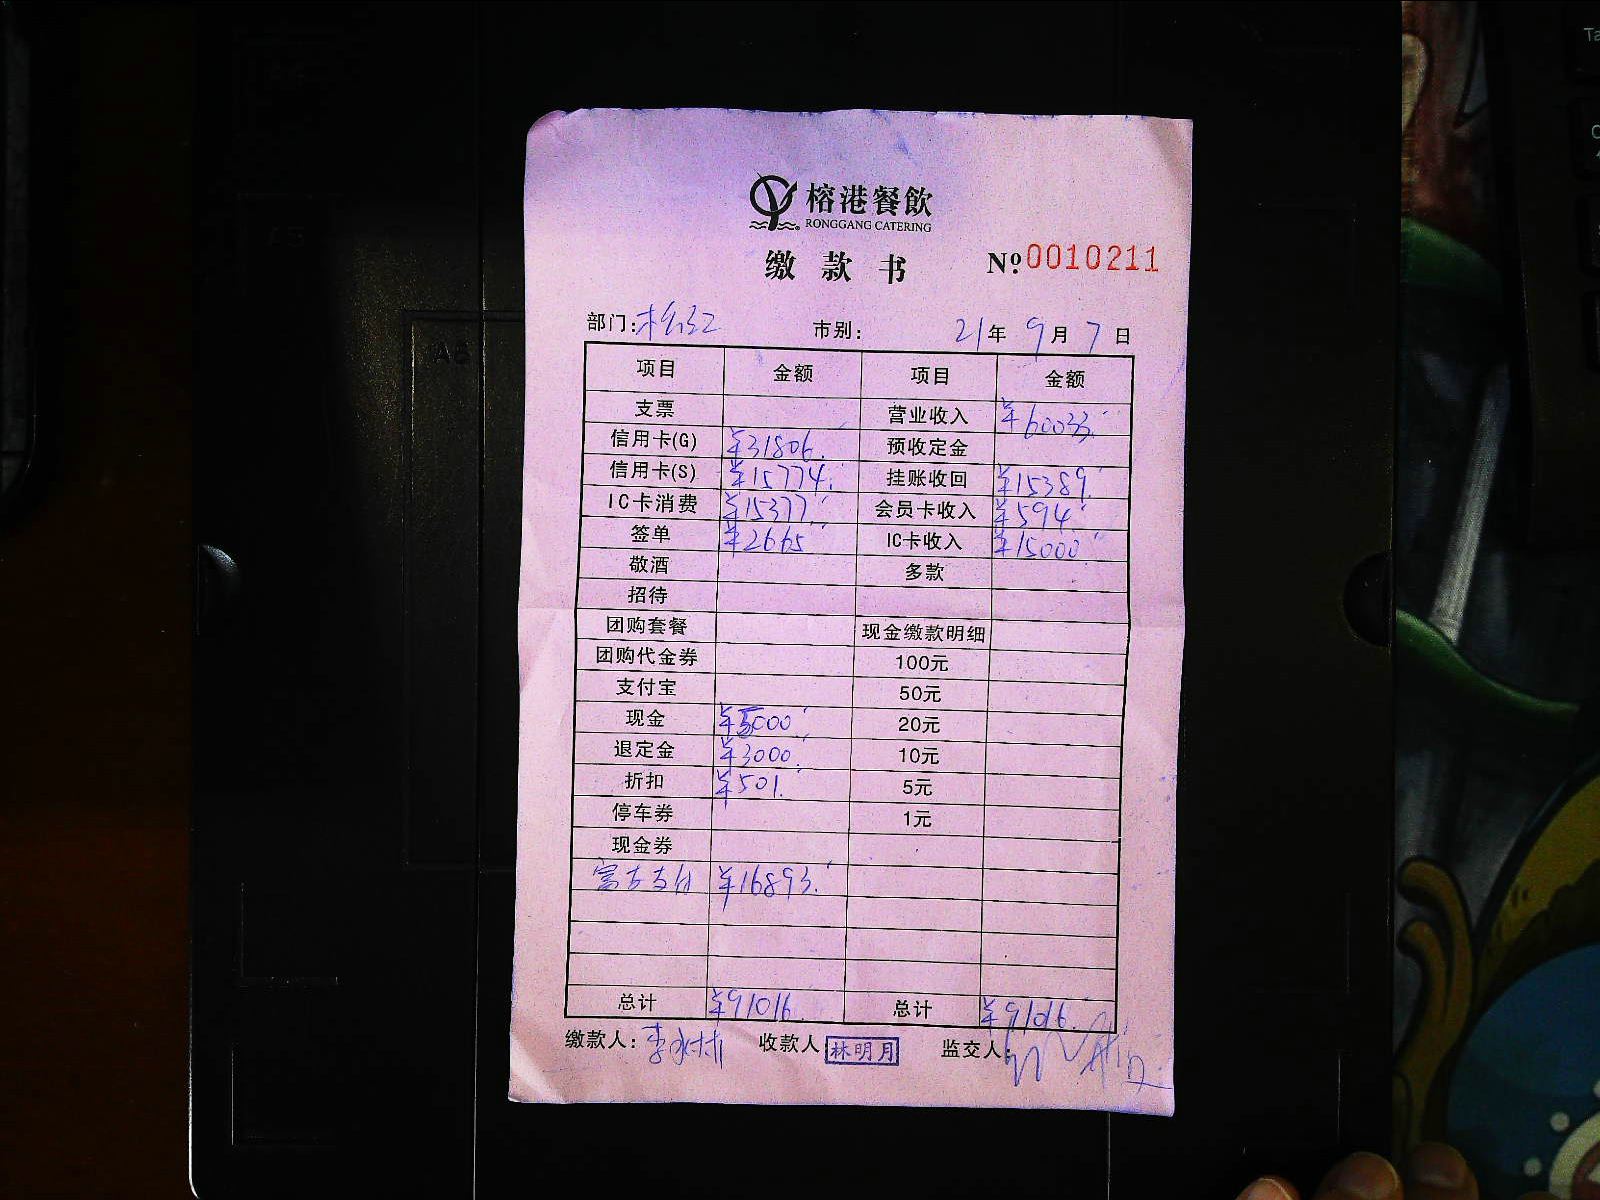 榕港餐飲
RONGGANG CATERING
缴款书 № 0010211
部门: 市别: 21年9月7日
项目 金额 项目 金额
支票 营业收入 ¥60033.
信用卡(G) ¥31806. 预收定金
信用卡(S) ¥15774. 挂账收回 ¥15389.
IC卡消费 ¥15377. 会员卡收入 ¥594
签单 ¥2665 IC卡收入 ¥15000
敬酒 多款
招待
团购套餐 现金缴款明细
团购代金券 100元
支付宝 50元
现金 ¥5000 20元
退定金 ¥3000. 10元
折扣 ¥501. 5元
停车券 1元
现金券
富友支付 ¥16893.
总计 ¥91016. 总计 ¥91016.
缴款人: 收款人 林明月 监交人: